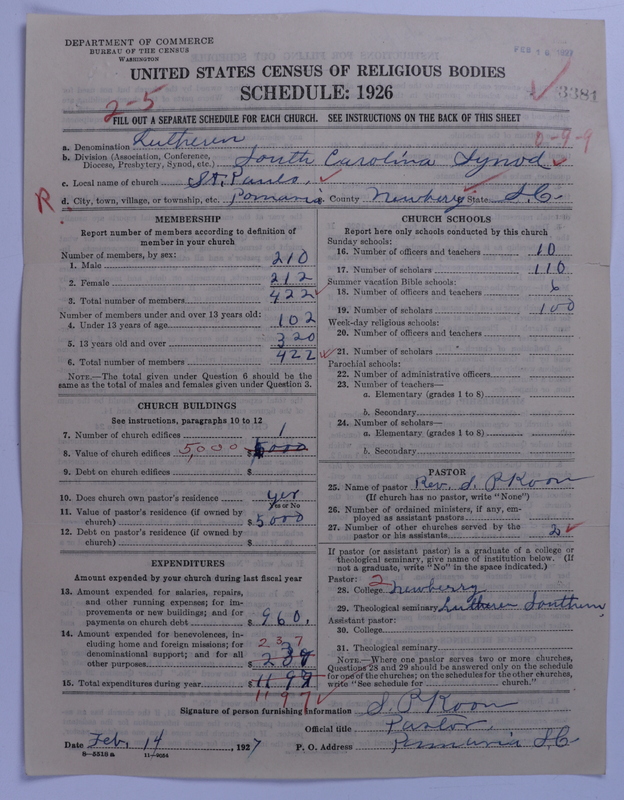 DEPARTMENT OF COMMERCE
BUREAU OF THE CENSUS
WASHINGTON
FEB 16 1927
UNITED STATES CENSUS OF RELIGIOUS BODIES
SCHEDULE: 1926
3381
2-5
FILL OUT A SEPARATE SCHEDULE FOR EACH CHURCH. SEE INSTRUCTIONS ON THE BACK OF THIS SHEET
0-9-9
a. Denomination Lutheren
b. Division (Association, Conference, Diocese, Presbytery, Synod, etc.) South Carolina Synod
c. Local name of church St. Pauls.
R d. City, town, village, or township, etc. Pomaria County Newberry State S.C.
MEMBERSHIP
Report number of members according to definition of
member in your church
Number of members, by sex:
1. Male 210
2. Female 212
3. Total number of members 422
Number of members under and over 13 years old:
4. Under 13 years of age 102
5. 13 years old and over 320
6. Total number of members 422
NOTE.—The total given under Question 6 should be the
same as the total of males and females given under Question 3.
CHURCH BUILDINGS
See instructions, paragraphs 10 to 12
7. Number of church edifices 1
8. Value of church edifices 5,000 $ 5000
9. Debt on church edifices $
10. Does church own pastor's residence yes
Yes or No
11. Value of pastor's residence (if owned by
church) $ 5000
12. Debt on pastor's residence (if owned by
church) $
EXPENDITURES
Amount expended by your church during last fiscal year
13. Amount expended for salaries, repairs,
and other running expenses; for im-
provements or new buildings; and for
payments on church debt $ 960.
14. Amount expended for benevolences, in-
cluding home and foreign missions; for 237
denominational support; and for all
other purposes $
15. Total expenditures during year $
1197
CHURCH SCHOOLS
Report here only schools conducted by this church
Sunday schools:
16. Number of officers and teachers 10
17. Number of scholars 110
Summer vacation Bible schools:
18. Number of officers and teachers 6
19. Number of scholars 100
Week-day religious schools:
20. Number of officers and teachers
21. Number of scholars
Parochial schools:
22. Number of administrative officers
23. Number of teachers—
a. Elementary (grades 1 to 8)
b. Secondary
24. Number of scholars—
a. Elementary (grades 1 to 8)
b. Secondary
PASTOR
25. Name of pastor Rev. S. P. Koon
(If church has no pastor, write "None")
26. Number of ordained ministers, if any, em-
ployed as assistant pastors
27. Number of other churches served by the
pastor or his assistants 2
If pastor (or assistant pastor) is a graduate of a college or
theological seminary, give name of institution below. (If
not a graduate, write "No" in the space indicated.)
Pastor: 2
28. College Newberry
29. Theological seminary Lutheren Southern
Assistant pastor:
30. College
31. Theological seminary
NOTE.—Where one pastor serves two or more churches,
Questions 28 and 29 should be answered only on the schedule
for one of the churches; on the schedules for the other churches,
write "See schedule for church."
Signature of person furnishing information S. P. Koon
Official title Pastor
Date Feb, 14, 1927 P. O. Address Pomaria S.C
8—5518 a 11—9054